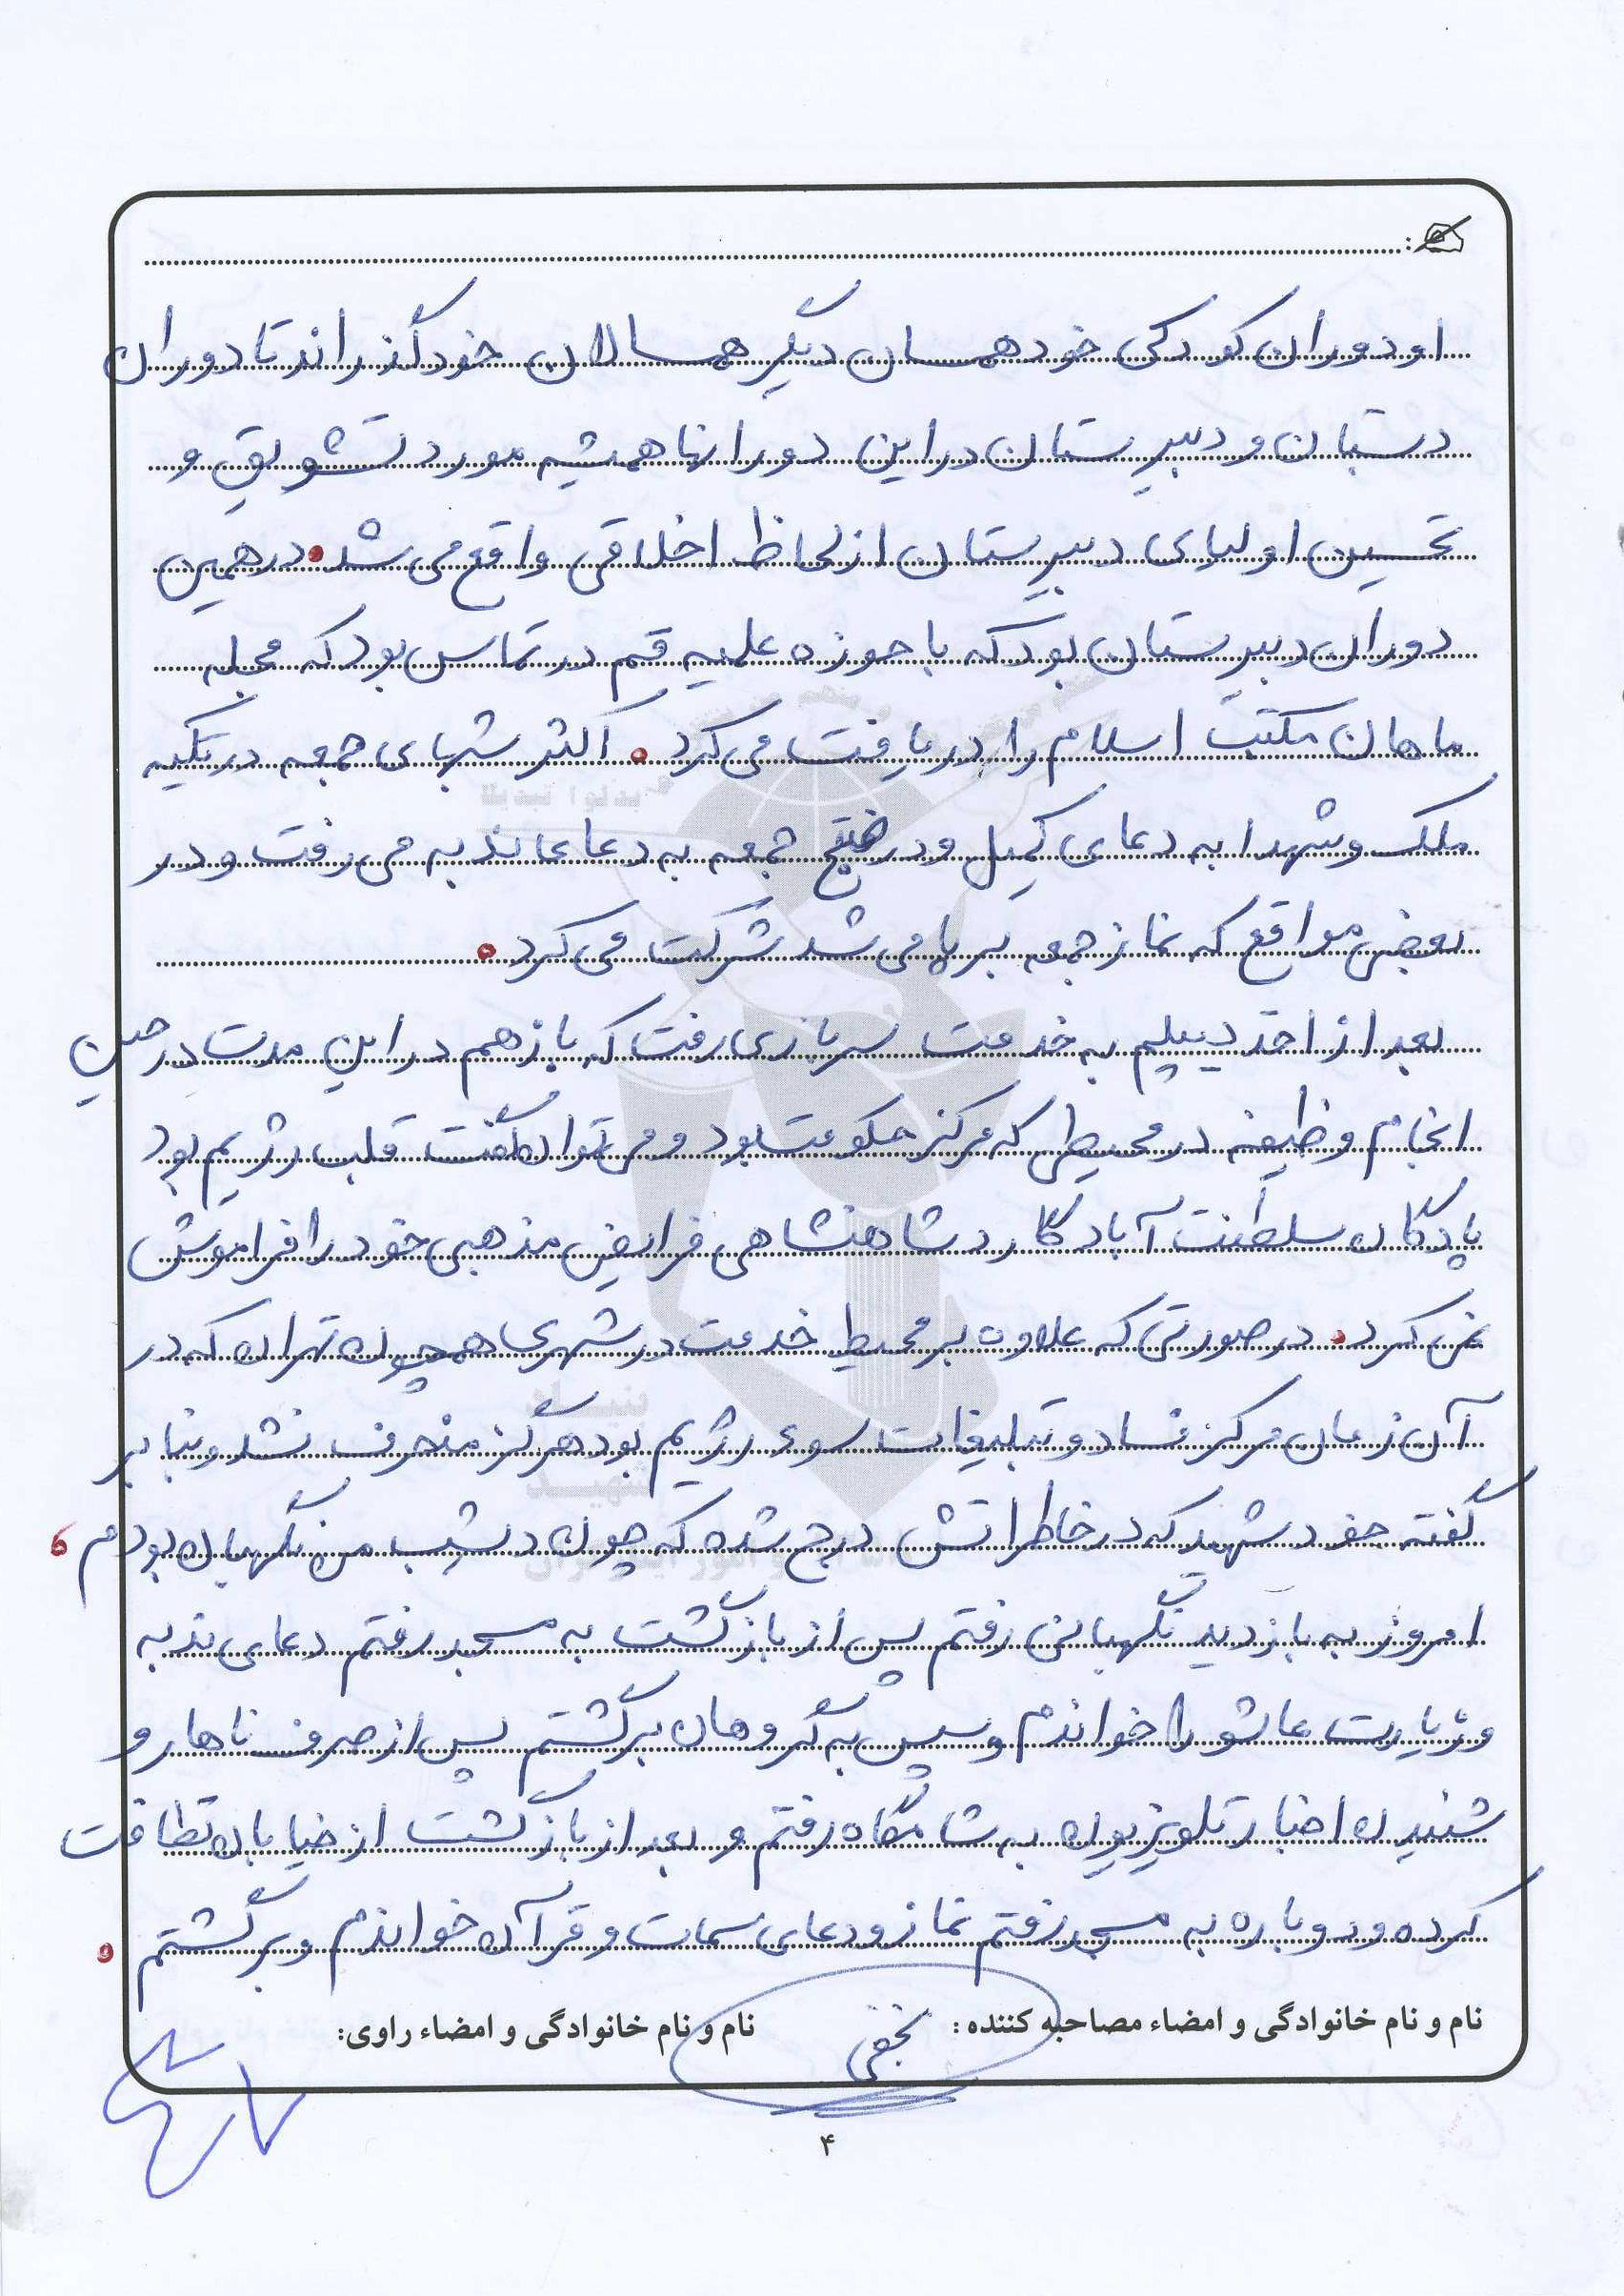 او دوران کودکی خود همسان دیگر همسالان خود گذراند تا دوران
دبستان و دبیرستان در این دورانها همیشه مورد تشویق و
تحسین اولیای دبیرستان از لحاظ اخلاقی واقع می شد. در همین
دوران دبیرستان بود که با حوزه علمیه قم در تماس بود که مجله
ماهان مکتب اسلام را دریافت می کرد. اکثر شبهای جمعه در تکیه
ملک و شهدا به دعای کمیل و در صبح جمعه به دعای ندبه می رفت و در
بعضی مواقع که نماز جمعه برپا می شد شرکت می کرد.
بعد از اخذ دیپلم به خدمت سربازی رفت که باز هم در این مدت در حین
انجام وظیفه در محیطی که مرکز حکومت بود و می توان گفت قلب رژیم بود
پادگان سلطنت آباد گارد شاهنشاهی فرایض مذهبی خود را فراموش
نمی کرد. در صورتی که علاوه بر محیط خدمت در شهری همچون تهران که در
آن زمان مرکز فساد و تبلیغات سوء رژیم بود هرگز منحرف نشد و بنا بر
گفته خود شهید که در خاطراتش درج شده که چون دیشب من نگهبان بودم ،
امروز به بازدید نگهبانی رفتم پس از بازگشت به مسجد رفتم دعای ندبه
و زیارت عاشورا خواندم و سپس به گروهان برگشتم پس از صرف ناهار و
شنیدن اخبار تلویزیون به شامگاه رفتم و بعد از بازگشت از خیابان نظافت
کرده و دوباره به مسجد رفتم نماز و دعای سمات و قرآن خواندم و برگشتم .
نام و نام خانوادگی و امضاء مصاحبه کننده: نجفی
نام و نام خانوادگی و امضاء راوی:
۴